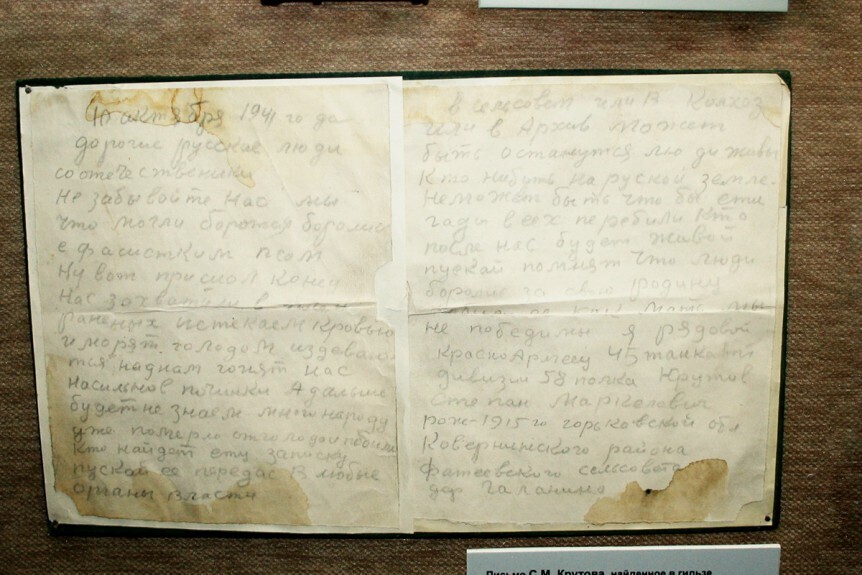 октября 1941 го да
дорогие русские люди
соотечественники
Не забывайте нас мы
что могли боротся боролись
с фасистким псом
Ну вот пришол конец
Нас захватили в плен
раненых истекаем кровью
и морят голодом издеваю
тся над нам гонят нас
А дальше
будет не знаем много народу
уже померло от голода и побили
кто найдет ету записку
пускай ее передас в любые
органы власти
В сельсовет или в Колхоз
или в Архив может
быть останутся лю ди живы
Кто нибуть на руской земле.
Неможет быть что бы ети
гады всех перебили кто
после нас будет живой
пускай помнят что люди
боролис за свою родину
как мать мы
не победимы я рядовой
красноАрмеец 45
дивизии 58 полка Крутов
Степан Маркелович
рож-1915 го горьковской обл
Ковернинского района
Фатеевского селсовета
дер Галанино
Письмо С.М. Крутова, найденное в гильзе